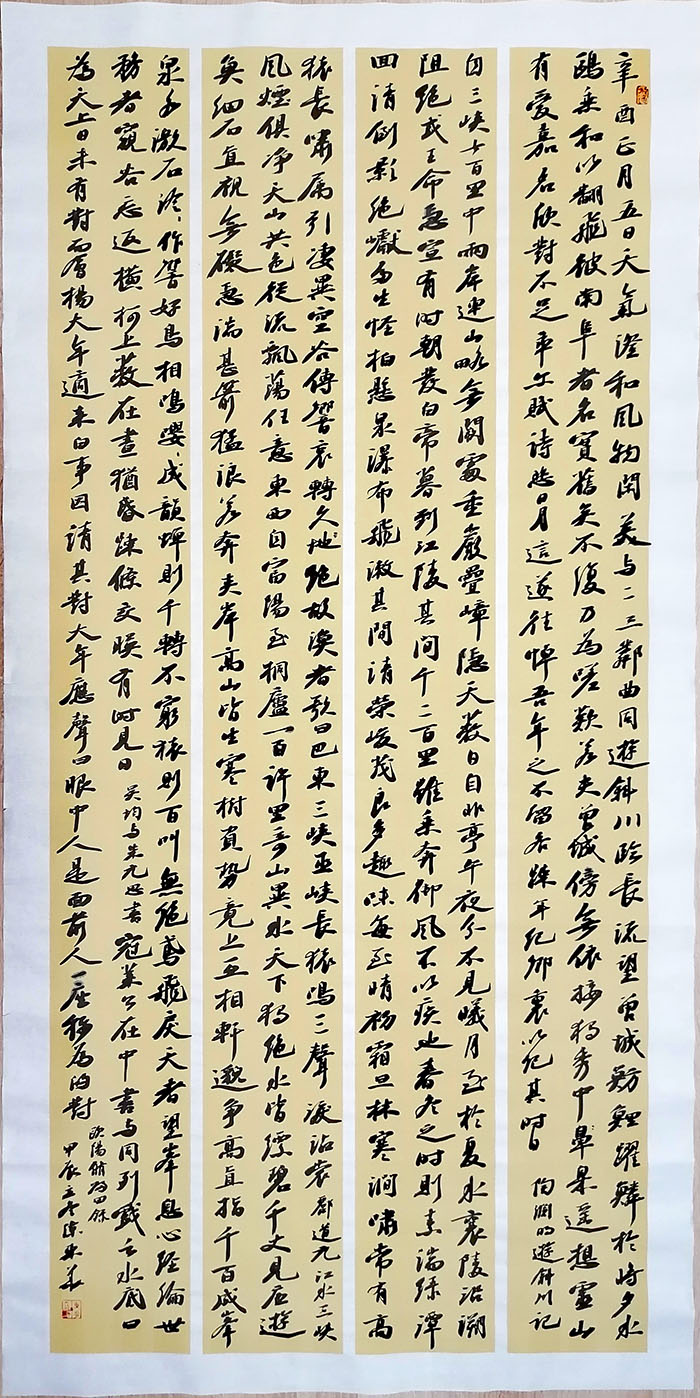 辛酉正月五日天氣澄和風物閑美与二三鄰曲同遊斜川臨長流望曾城魴鯉躍鱗於將夕水
鷗乘和以翻飛彼南阜者名實舊矣不復乃為嗟歎若夫曾城傍無依接獨秀中皋遙想靈山
有愛嘉名欣對不足率尔賦詩悲日月這遂往悼吾年之不留各疎年紀鄉裏以紀其時日
陶淵明遊斜川記
自三峽七百里中兩岸連山略無闕處重巖疊嶂隱天蔽日自非亭午夜分不見曦月至於夏水襄陵沿溯
阻絕或王命急宣有時朝發白帝暮到江陵其間千二百里雖乘奔御風不以疾也春冬之時則素湍綠潭
回清倒影絕巘多生怪柏懸泉瀑布飛漱其間清榮峻茂良多趣味每至晴初霜旦林寒澗嘯常有高
猿長嘯屬引淒異空谷傳響哀轉久地絕故漁者歌曰巴東三峽巫峽長猿鳴三聲淚沾裳 酈道元江水三峽
風煙俱淨天山共色從流飄蕩任意東西自富陽至桐廬一百許里奇山異水天下獨絕水皆縹碧千丈見底遊
魚細石直視無礙急湍甚箭猛浪若奔夾岸高山皆生寒樹負勢竟上互相軒邈爭高直指千百成峯
泉水激石泠泠作響好鳥相鳴嚶嚶成韻蟬則千轉不窮猿則百叫無絕鳶飛戾天者望峯息心經綸世
務者窺谷忘返橫柯上蔽在晝猶昏疎條交映有時見日 吳均与朱元思書 寇萊公在中書与同列戲云水底日
為天上日未有對而會楊大年適來白事因請其對大年應聲曰眼中人是面前人一座稱為的對
歐陽脩歸田錄
甲辰立冬陳